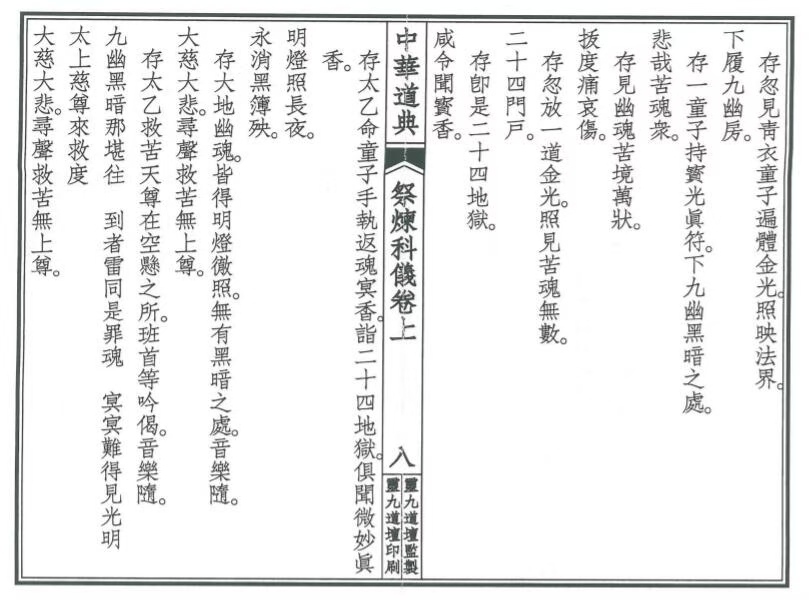 存忽見青衣童子遍體金光。照映法界。
下履九幽房。
存一童子持寶光眞符。下九幽黑暗之處。
悲哉苦魂衆。
存見幽魂苦境萬狀。
扳度痛哀傷。
存忽放一道金光。照見苦魂無數。
二十四門戶。
存卽是二十四地獄。
咸令聞寶香。
中華道典
祭煉科儀卷上
八
靈九道壇監製
靈九道壇印刷
存太乙命童子手執返魂寘香。詣二十四地獄。俱聞微妙眞
香。
明燈照長夜。
永消黑簿殃。
存大地幽魂。皆得明燈徹照。無有黑暗之處。音樂隨。
大慈大悲。尋聲救苦無上尊。
存太乙救苦天尊在空懸之所。班首等吟偈。音樂隨。
九幽黑暗那堪往　到者雷同是罪魂　寘寘難得見光明
太上慈尊來救度
大慈大悲。尋聲救苦無上尊。